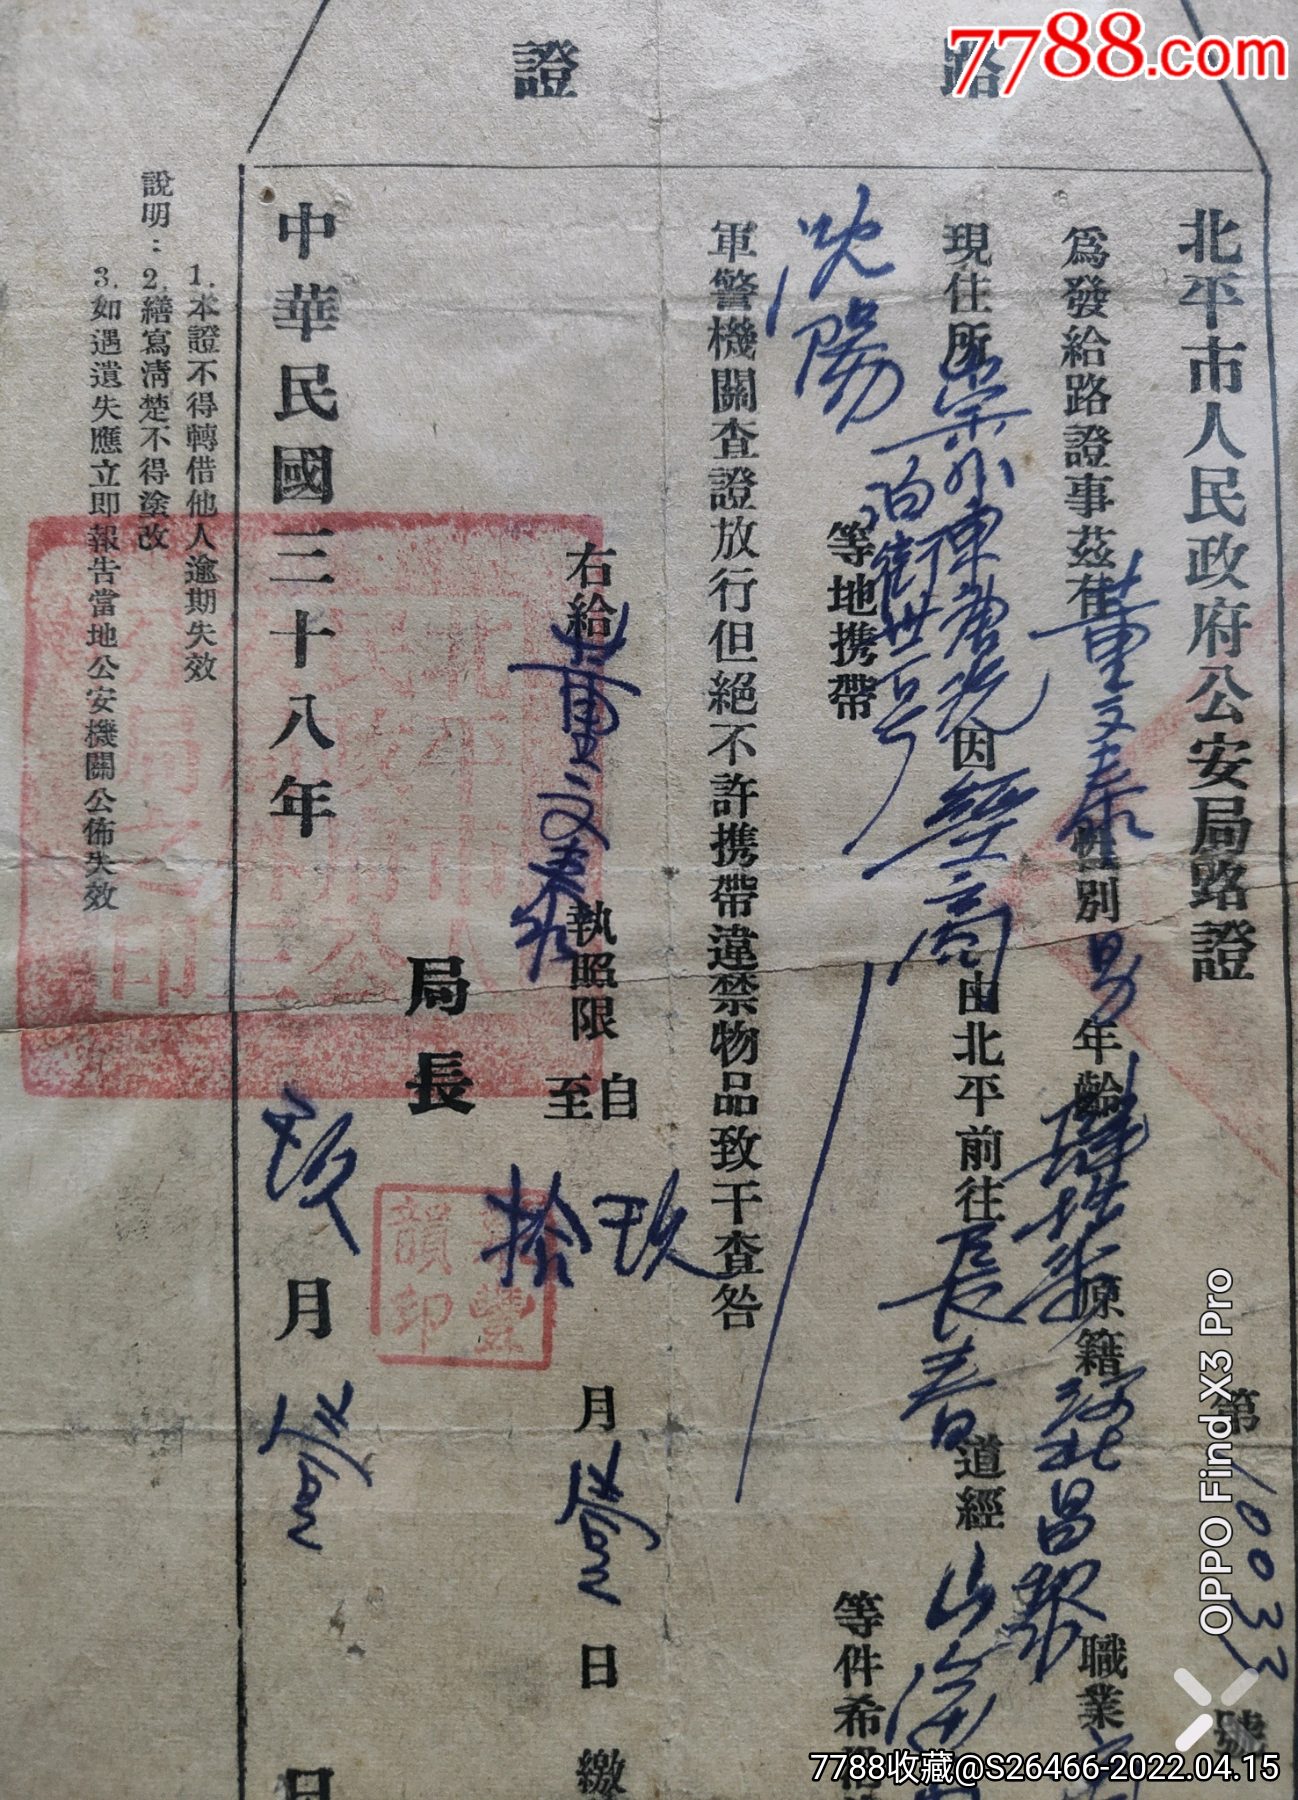 路證
北平市人民政府公安局路證
第10033號
為發給路證事茲有董文泰性別男年齡肆拾歲原籍河北昌黎職業商
現住所崇外東唐洗泊街廿一号因經商由北平前往長春道經山海
沈陽等地携帶等件希沿
軍警機關查證放行但絕不許携帶違禁物品致干查咎
右給董文泰執照限自玖月壹日至拾繳
局長
中華民國三十八年玖月壹日
說明：1.本證不得轉借他人逾期失效
2.繕寫清楚不得塗改
3.如遇遺失應立即報告當地公安機關公佈失效
7788.com
OPPO Find X3 Pro
7788收藏@S26466-2022.04.15